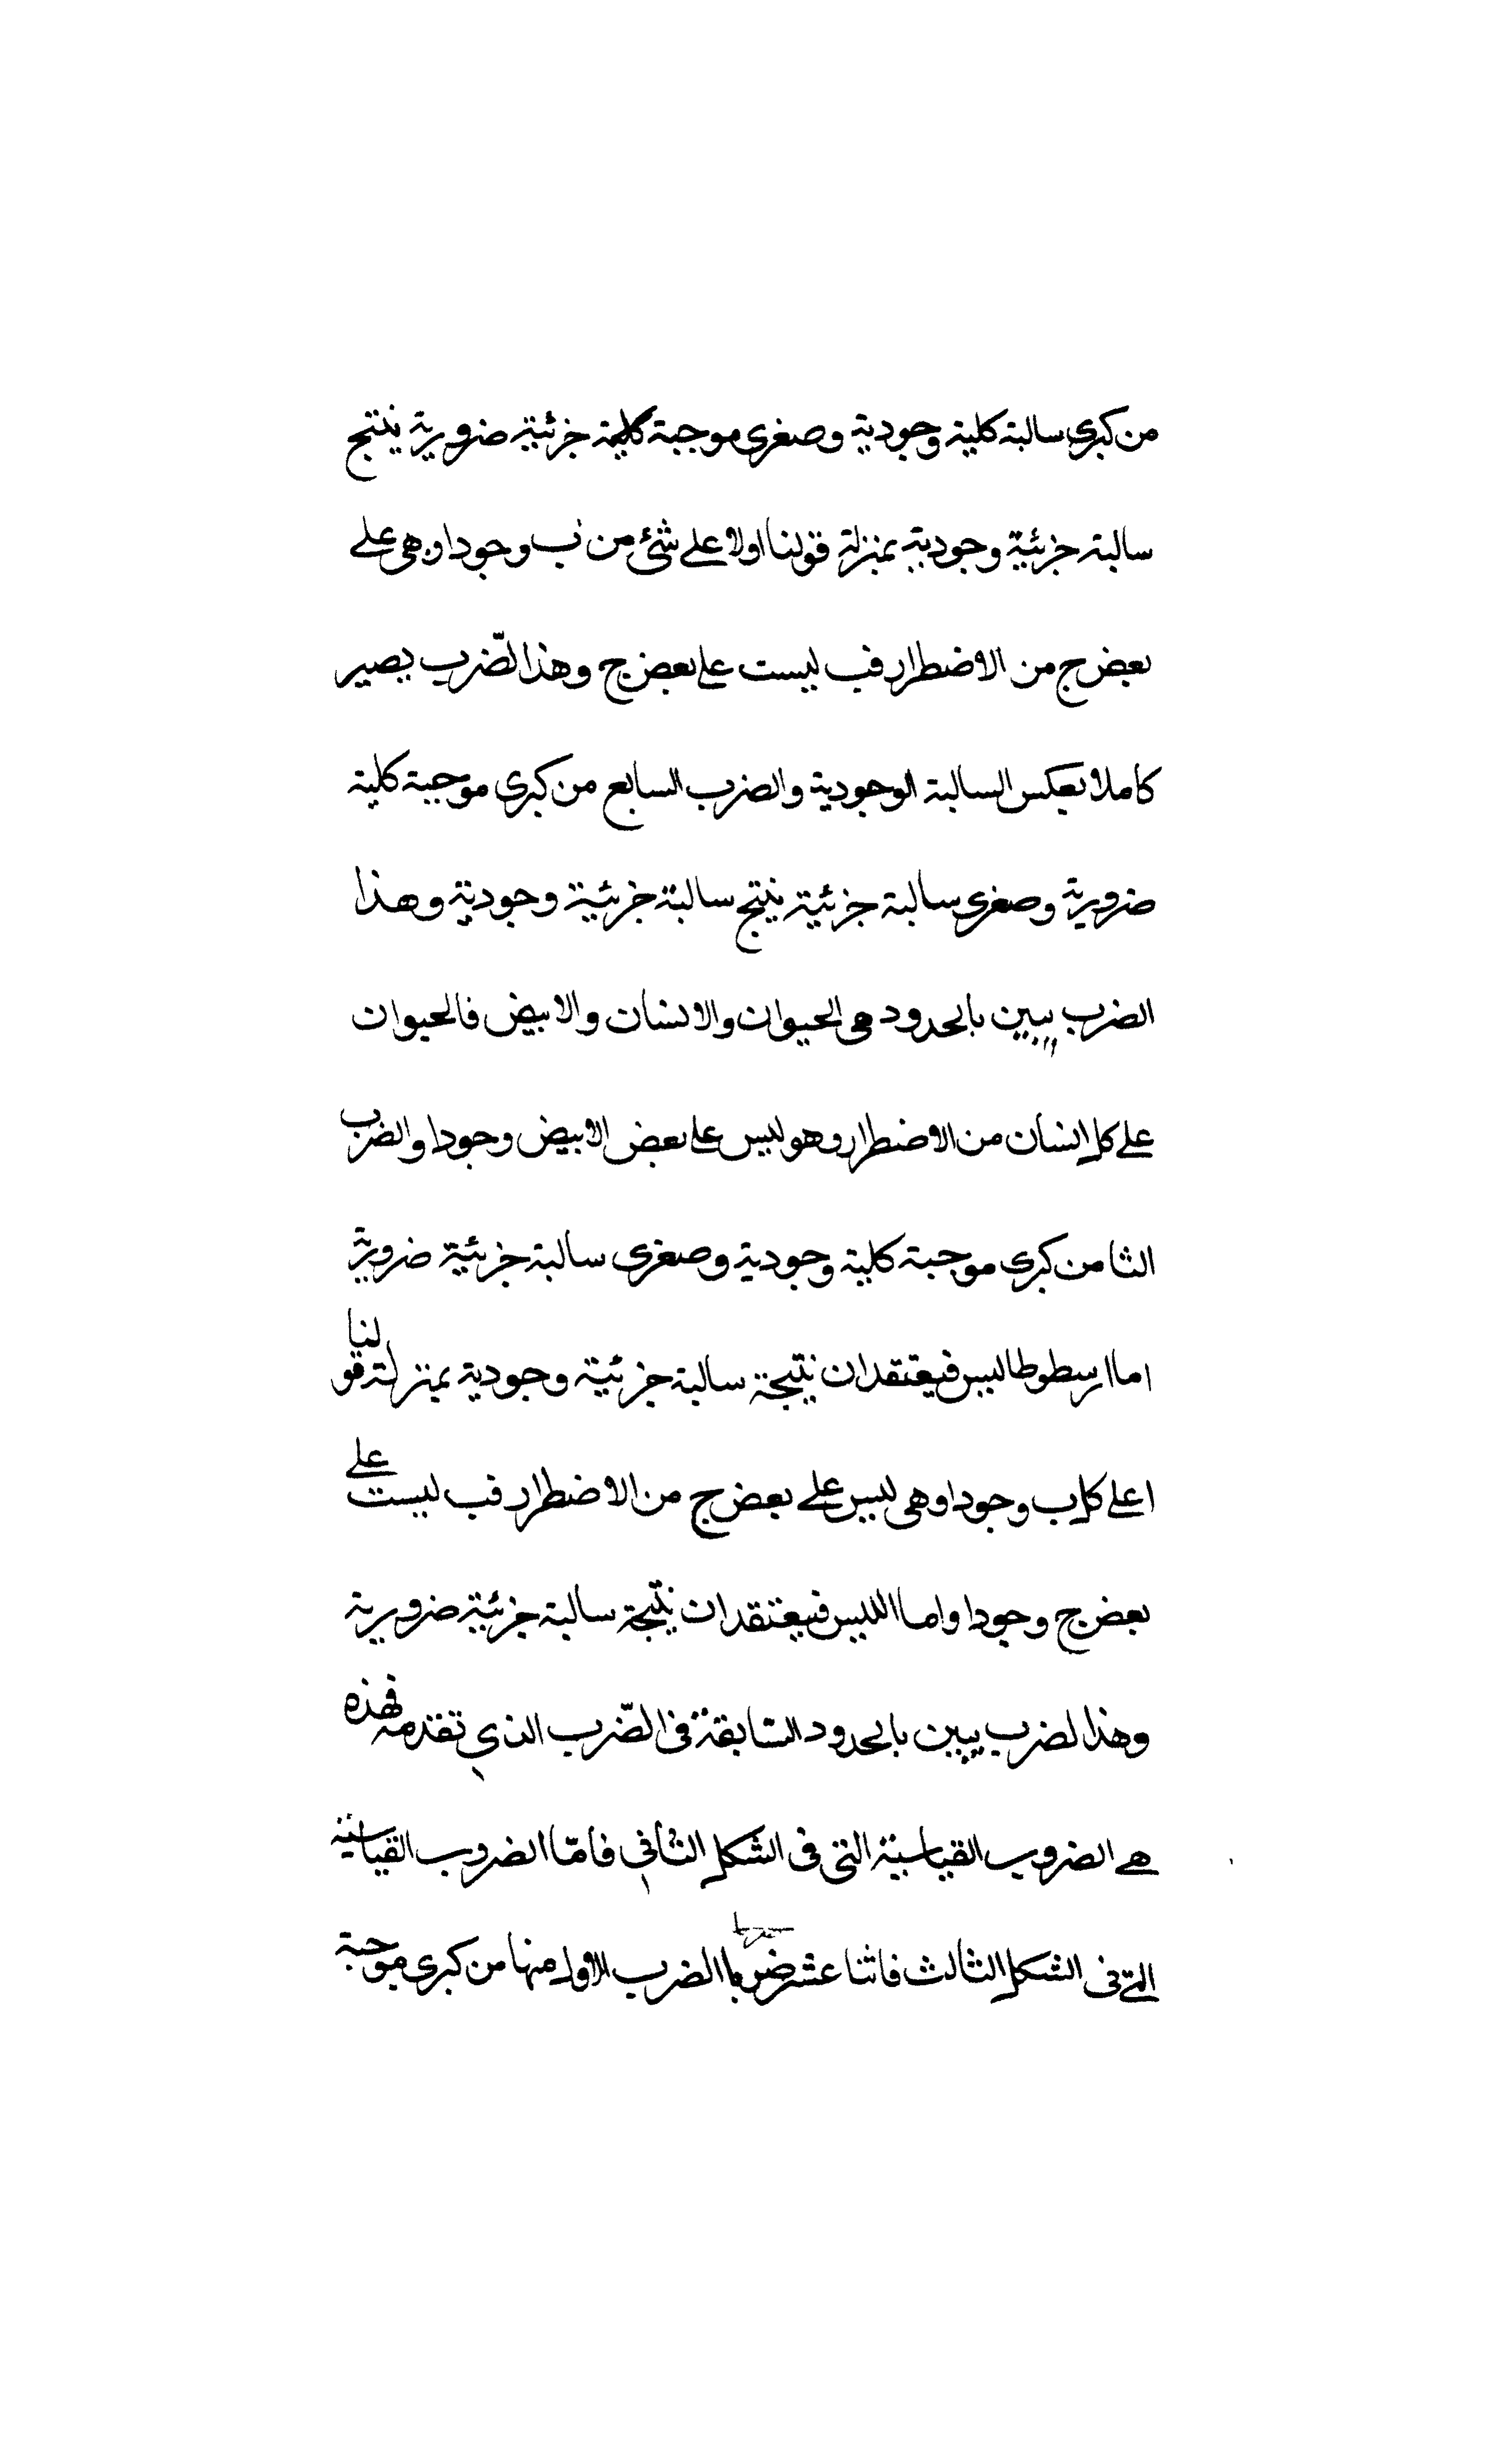 من كبرى سالبة كلية وجودية وصغرى موجبة كلية جزئية ضرورية ينتج
سالبة جزئية وجودية بمنزلة قولنا اولا على شئ من ب وجودا وهى على
بعض ج من الاضطرار فب ليست على بعض ج وهذا الضّرب يصير
كاملا بعكس السالبة الوجودية والضرب السابع من كبرى موجبة كلية
ضرورية وصغرى سالبة جزئية ينتج سالبة جزئية وجودية وهذا
الضرب يبين بالحدود هى الحيوان والانسان والابيض فالحيوان
على كل انسان من الاضطرار وهو ليس على بعض الابيض وجودا والضرب
الثامن كبرى موجبة كلية وجودية وصغرى سالبة جزئية ضرورية
اما ارسطوطاليس فيعتقد ان نتيجة سالبة جزئية وجودية بمنزلة قولنا
ا على كل ب وجودا وهى ليس على بعض ج من الاضطرار فب ليست على
بعض ج وجودا واما الليس فيعتقد ان نتيجة سالبة جزئية ضرورية
وهذا لضرب يبين بالحدود السّابقة فى الضّرب الذي تقدمه فهذه
هى الضروب القياسية التى فى الشكل الثانى فامّا الضروب القياسية
التى فى الشكل الثالث فاثنا عشر ضربا الضرب الاول منها من كبرى موجبة